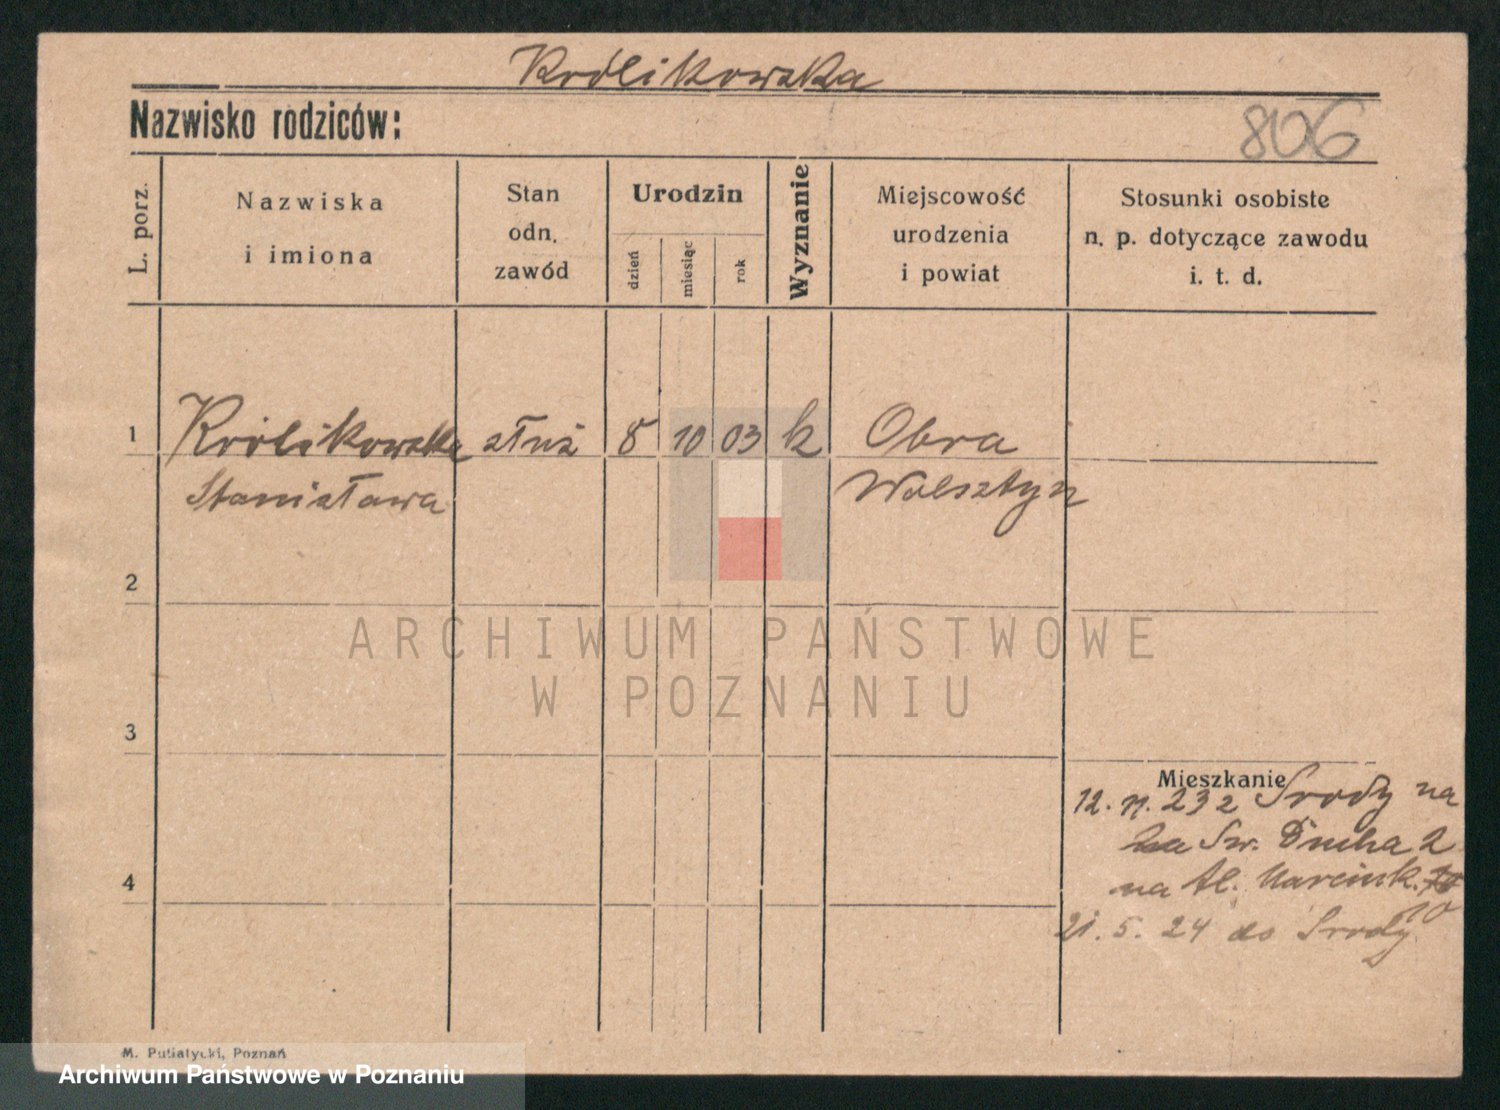 Królikowska
Nazwisko rodziców:
806
L. porz.
Nazwiska
i imiona
Stan
odn.
zawód
Urodzin
dzień
miesiąc
rok
Wyznanie
Miejscowość
urodzenia
i powiat
Stosunki osobiste
n. p. dotyczące zawodu
i. t. d.
1 Królikowska służ 8 10 03 k Obra
Stanisława Wolsztyn
2
ARCHIWUM PAŃSTWOWE
W POZNANIU
3
Mieszkanie
12. 11. 23 z Środy na
Św. Ducha 2
na Al. Marcink. 10
4
21. 5. 24 do Środy
M. Putiatycki, Poznań
Archiwum Państwowe w Poznaniu